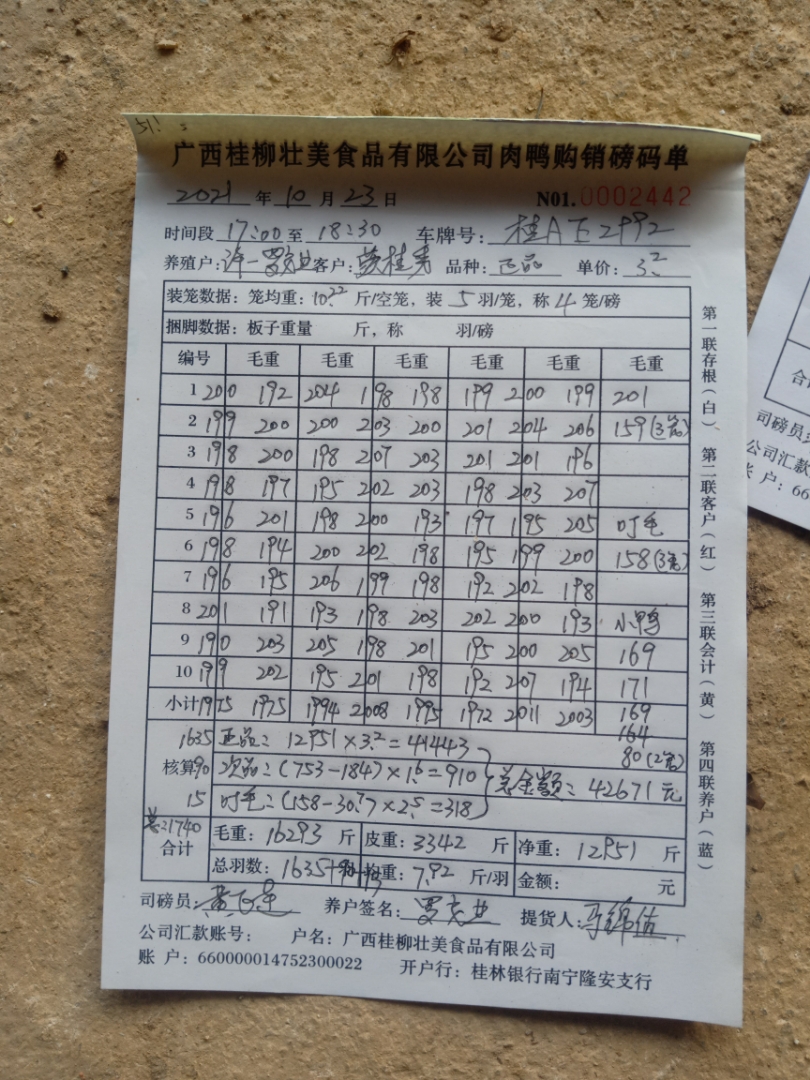 51!
广西桂柳壮美食品有限公司肉鸭购销磅码单
2021 年 10 月 23 日 N01.0002442
时间段 17:00 至 18:30 车牌号:桂A
养殖户: 客户: 品种:正品 单价:3.2
装笼数据:笼均重:10.22 斤/空笼,装 5 羽/笼,称 4 笼/磅
捆脚数据:板子重量 斤,称 羽/磅
编号 毛重 毛重 毛重 毛重 毛重 毛重
1 200 192 204 198 198 199 200 199 201
2 199 200 200 203 200 201 204 206 159(3笼)
3 198 200 198 207 203 201 201 196
4 198 197 195 202 203 198 203 207
5 196 201 198 200 193 197 195 205 叮毛
6 198 194 200 202 198 195 199 200 158(3笼)
7 196 195 206 199 198 192 202 198
8 201 191 193 198 203 202 200 193 小鸭
9 190 203 205 198 201 195 200 205 169
10 199 202 195 201 198 192 207 194 171
小计 1975 1975 1994 2008 1995 1972 2011 2003 169
164
80(2笼)
核算
1635 正品:12951×3.2=41443
90 次品:(753-184)×1.6=910 总金额:42671元
15 叮毛:(158-30.7)×2.5=318
总:1740
合计 毛重:16293 斤 皮重:3342 斤 净重:12951 斤
总羽数:1635 均重:7.92 斤/羽 金额: 元
司磅员: 养户签名: 提货人:
公司汇款账号: 户名:广西桂柳壮美食品有限公司
账 户:660000014752300022 开户行:桂林银行南宁隆安支行
第一联存根(白) 第二联客户(红) 第三联会计(黄) 第四联养户(蓝)
司磅员
公司汇款
账 户:66